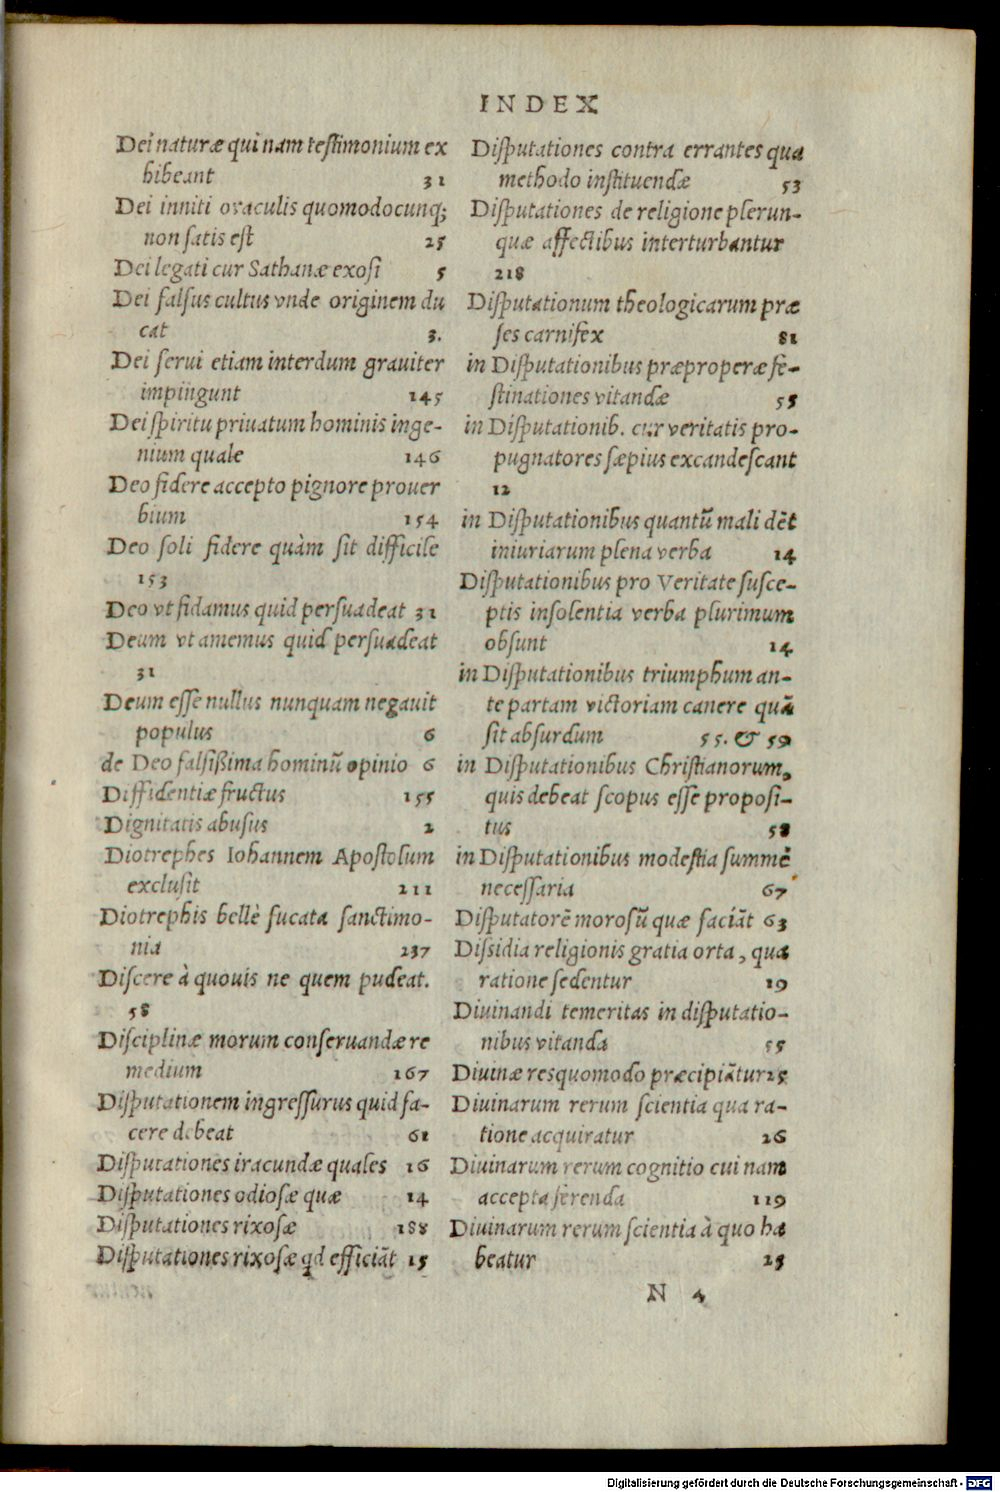 INDEX
Dei naturæ qui nam testimonium ex
hibeant 31
Dei inniti oraculis quomodocunq;
non satis est 25
Dei legati cur Sathanæ exosi 5
Dei falsus cultus vnde originem du
cat 3.
Dei serui etiam interdum grauiter
impingunt 145
Dei spiritu priuatum hominis inge-
nium quale 146
Deo fidere accepto pignore prouer
bium 154
Deo soli fidere quàm sit difficile
153
Deo vt fidamus quid persuadeat 31
Deum vt amemus quid persuadeat
31
Deum esse nullus nunquam negauit
populus 6
de Deo falsißima hominū opinio 6
Diffidentiæ fructus 155
Dignitatis abusus 2
Diotrephes Iohannem Apostolum
exclusit 211
Diotrephis bellè fucata sanctimo-
nia 237
Discere à quouis ne quem pudeat.
58
Disciplinæ morum conseruandæ re
medium 167
Disputationem ingressurus quid fa-
cere debeat 61
Disputationes iracundæ quales 16
Disputationes odiosæ quæ 14
Disputationes rixosæ 188
Disputationes rixosæ qd efficiāt 15
Disputationes contra errantes qua
methodo instituendæ 53
Disputationes de religione plerun-
quæ affectibus interturbantur
218
Disputationum theologicarum præ
ses carnifex 81
in Disputationibus præproperæ fe-
stinationes vitandæ 55
in Disputationib. cur veritatis pro-
pugnatores sæpius excandescant
12
in Disputationibus quantū mali dēt
iniuriarum plena verba 14
Disputationibus pro Veritate susce-
ptis insolentia verba plurimum
obsunt 14
in Disputationibus triumphum an-
te partam victoriam canere quā
sit absurdum 55. & 59
in Disputationibus Christianorum,
quis debeat scopus esse proposi-
tus 58
in Disputationibus modestia summè
necessaria 67
Disputatorē morosū quæ faciāt 63
Dissidia religionis gratia orta, qua
ratione sedentur 19
Diuinandi temeritas in disputatio-
nibus vitanda 55
Diuinæ res quomodo præcipiātur 25
Diuinarum rerum scientia qua ra-
tione acquiratur 26
Diuinarum rerum cognitio cui nam
accepta ferenda 119
Diuinarum rerum scientia à quo ha
beatur 25
N 4
Digitalisierung gefördert durch die Deutsche Forschungsgemeinschaft - DFG